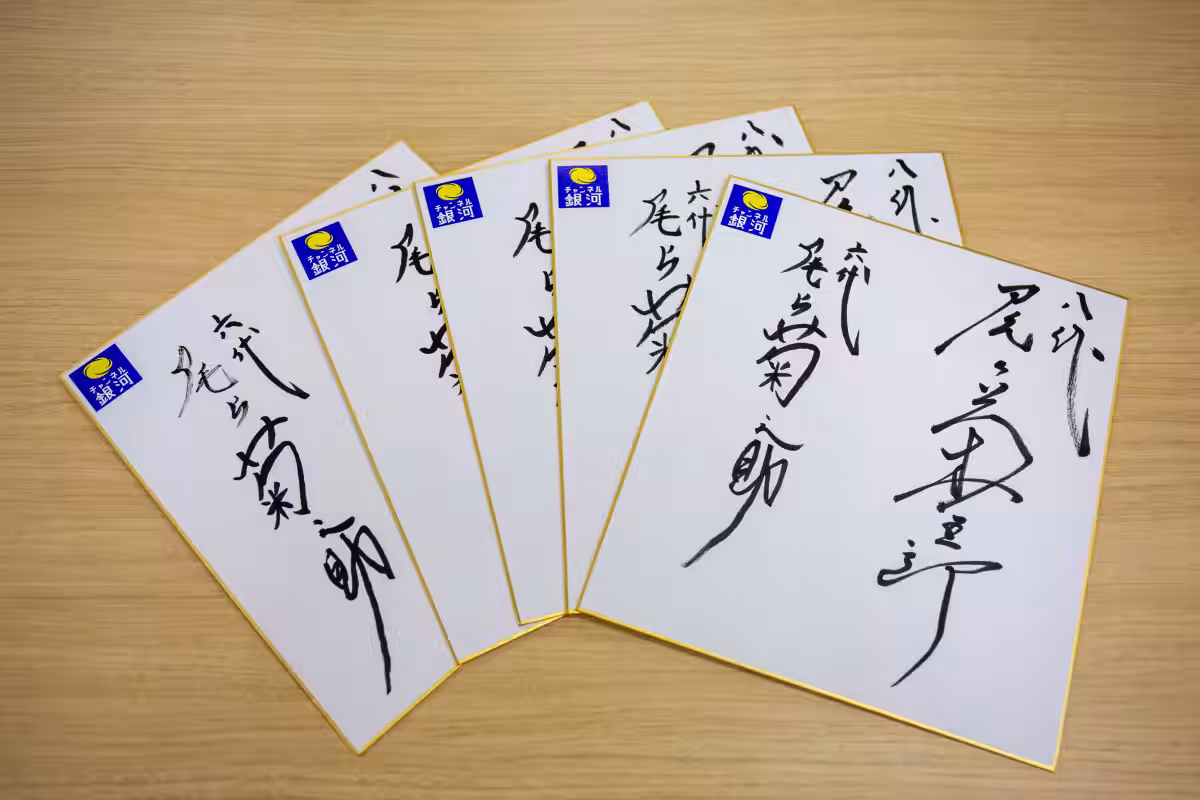 チャンネル
銀河
八
六代
尾上菊之助
チャンネル
銀河
八
尾上菊
チャンネル
銀河
八代
尾上菊
チャンネル
銀河
八代
尾
六代
尾上菊
チャンネル
銀河
八代
尾上菊五郎
六代
尾上菊之助